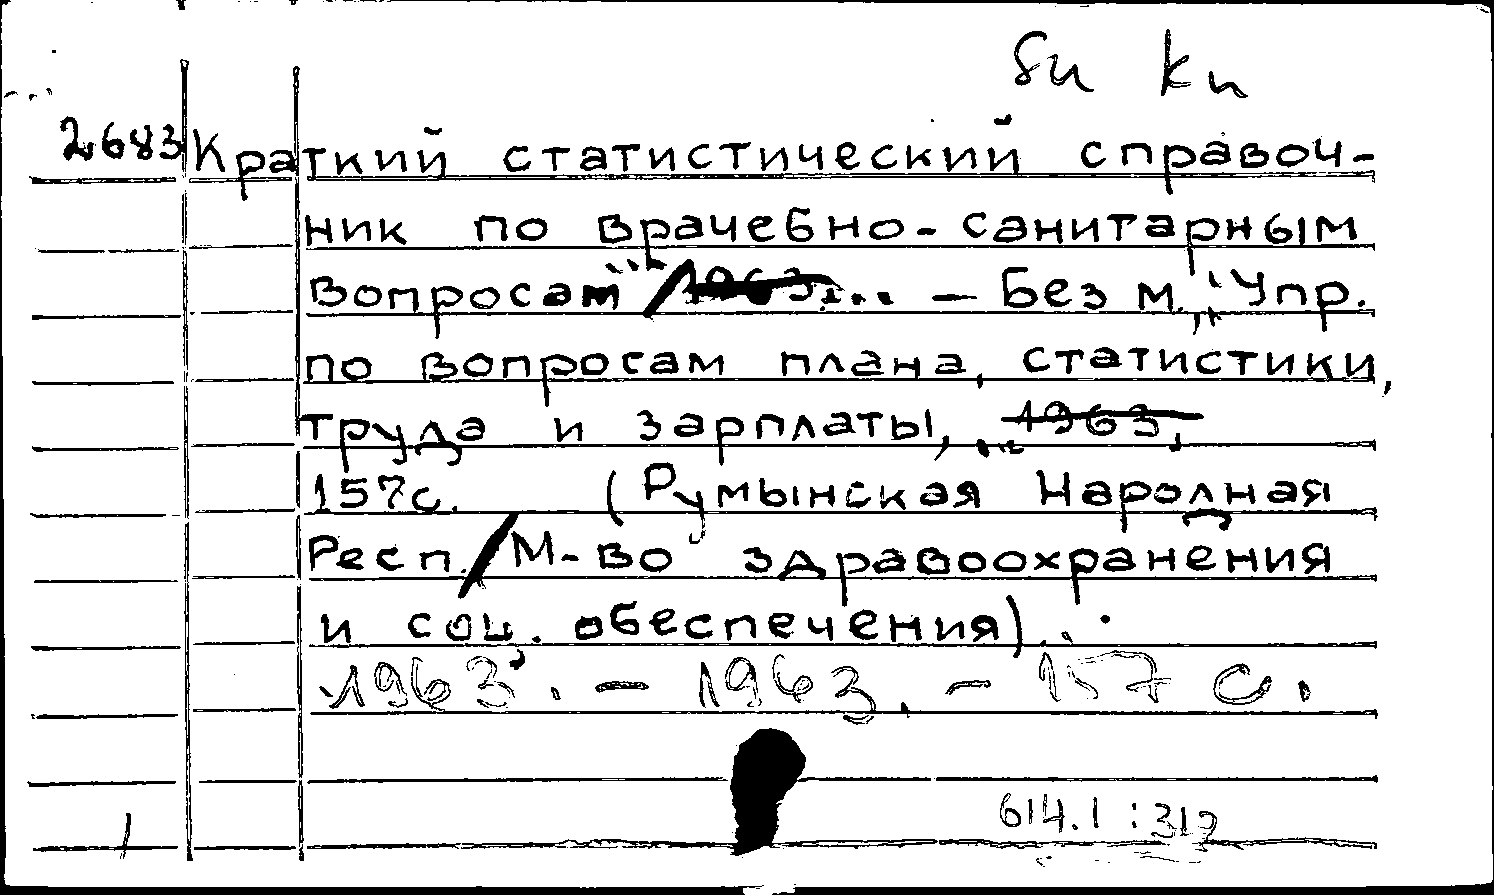 2683 Краткий статистический справоч-
ник по врачебно-санитарным
вопросам 1963... — Без м., Упр.
по вопросам плана, статистики,
труда и зарплаты, 1963.
157с. (Румынская Народная
Респ. М-во здравоохранения
и соц. обеспечения).
1963. — 1963. — 157 с.
614.1:31